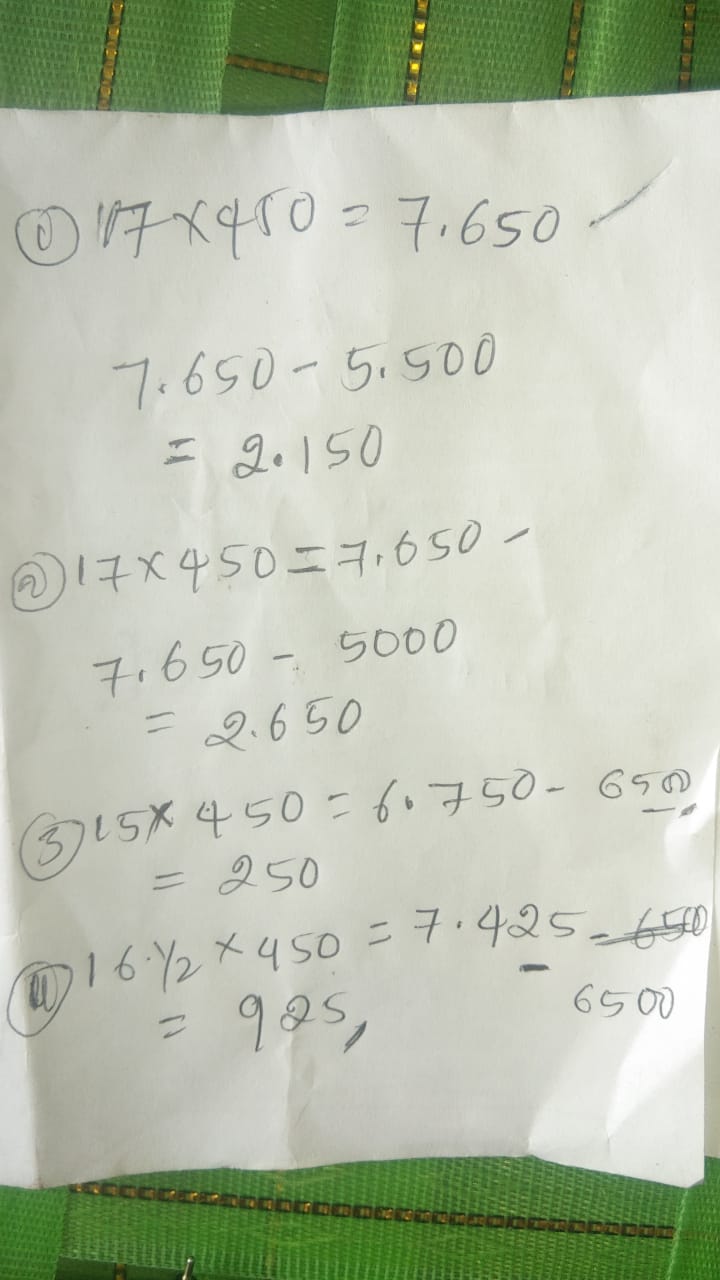 ① 17×450 = 7.650
7.650 - 5.500
= 2.150
② 17×450 = 7.650 -
7.650 - 5000
= 2.650
③ 15× 450 = 6.750 - 6500
= 250
④ 16.1/2 × 450 = 7.425 - 650
6500
= 925,